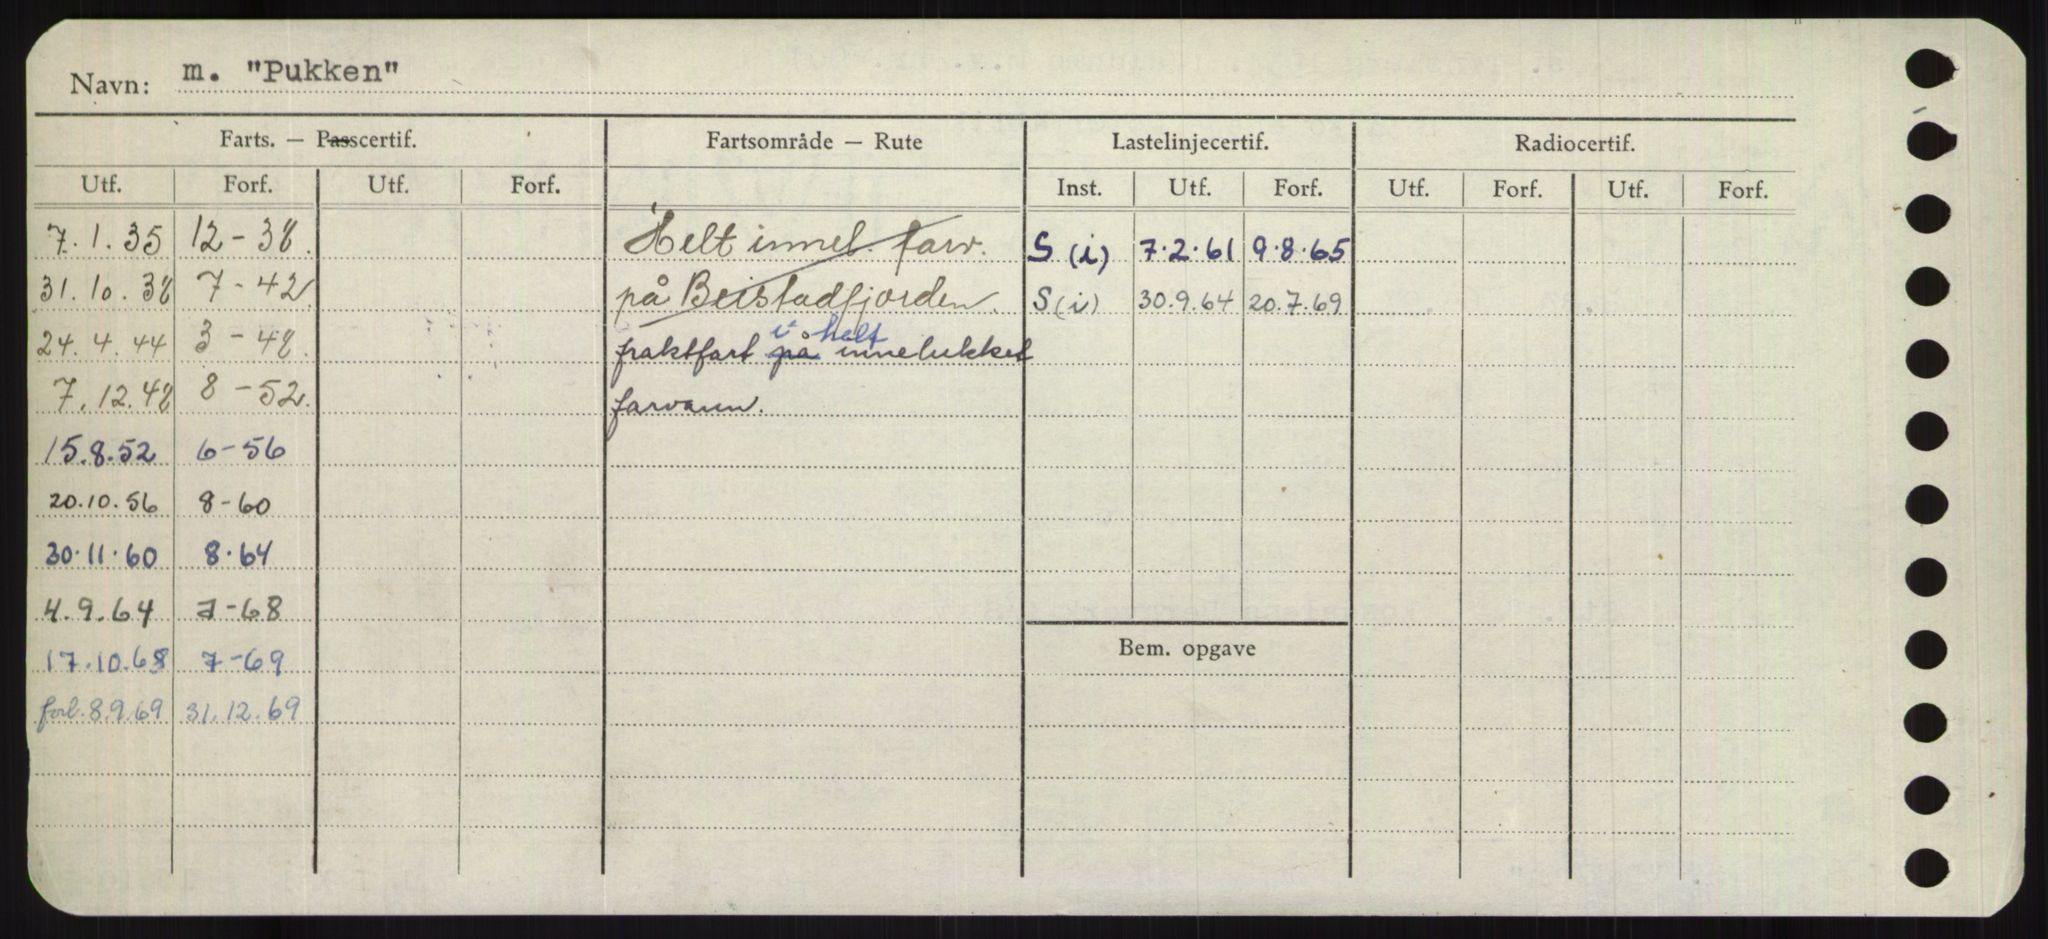 Navn: m. "Pukken"
Farts. — Passcertif. Fartsområde — Rute Lastelinjecertif. Radiocertif.
Utf. Forf. Utf. Forf. Inst. Utf. Forf. Utf. Forf. Utf. Forf.
7.1.35 12-38. Helt innel. farv. S (i) 7.2.61 9.8.65
31.10.38 7-42 på Beistadfjorden. S(i) 30.9.64 20.7.69
i helt
24.4.44 3-48. fraktfart på innelukket
7.12.48 8-52. farvann.
15.8.52 6-56
20.10.56 8-60
30.11.60 8.64
4.9.64 7-68
Bem. opgave
17.10.68 7-69
forl. 8.9.69 31.12.69